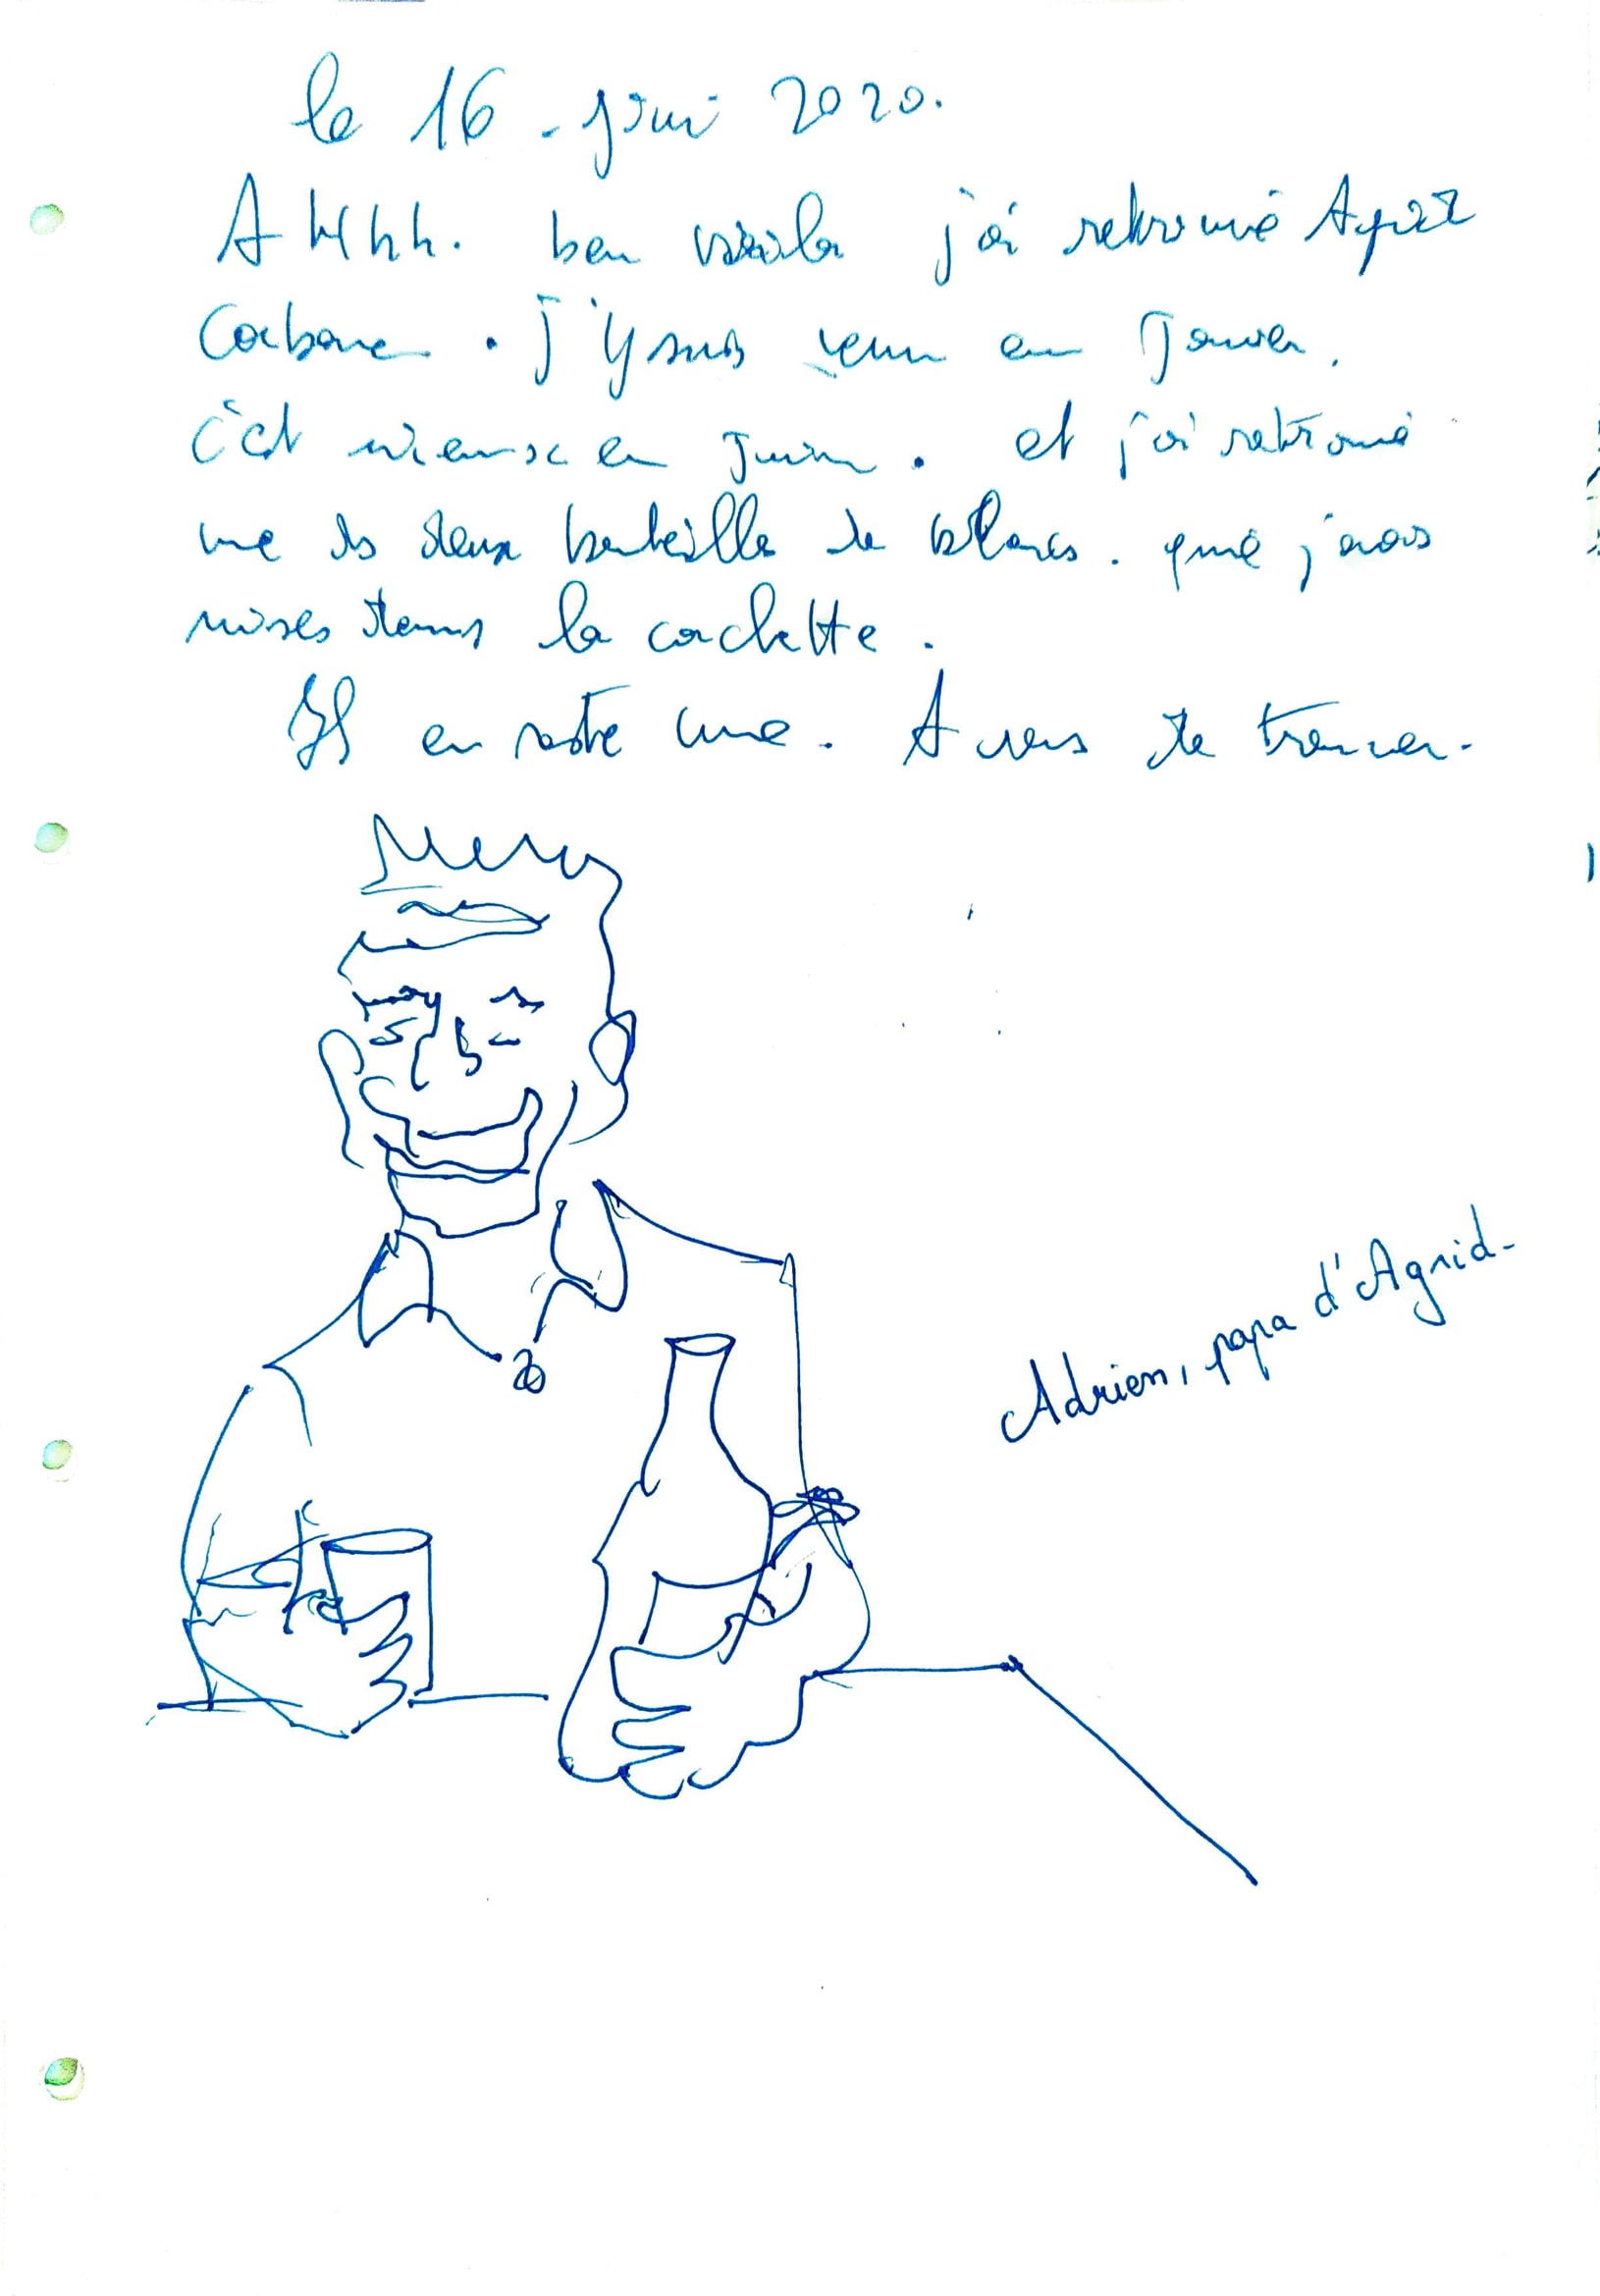 le 16 - juin 2020.
AHhhh. ben voila j'ai retrouvé
Cabane. J'y suis venu en Janvier.
c'est mieux en Juin. et j'ai retrouvé
une ds deux bouteille de blancs. que j'avais
mises dans la cachette.
Il en reste une. A vous de trouver.
Adrien, papa d'Agrid-